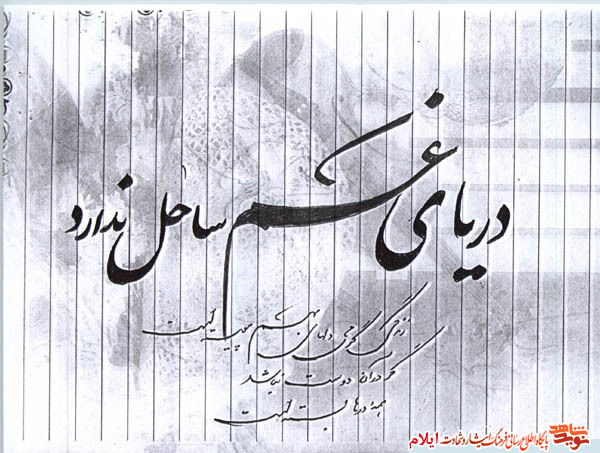 دریای غم ساحل ندارد
زندگی گرمی دلهای بهم پیوسته است
گر در آن دوست نباشد
همه درها بسته است
نوید شاهد پایگاه اطلاع رسانی فرهنگ ایثار و شهادت ایلام